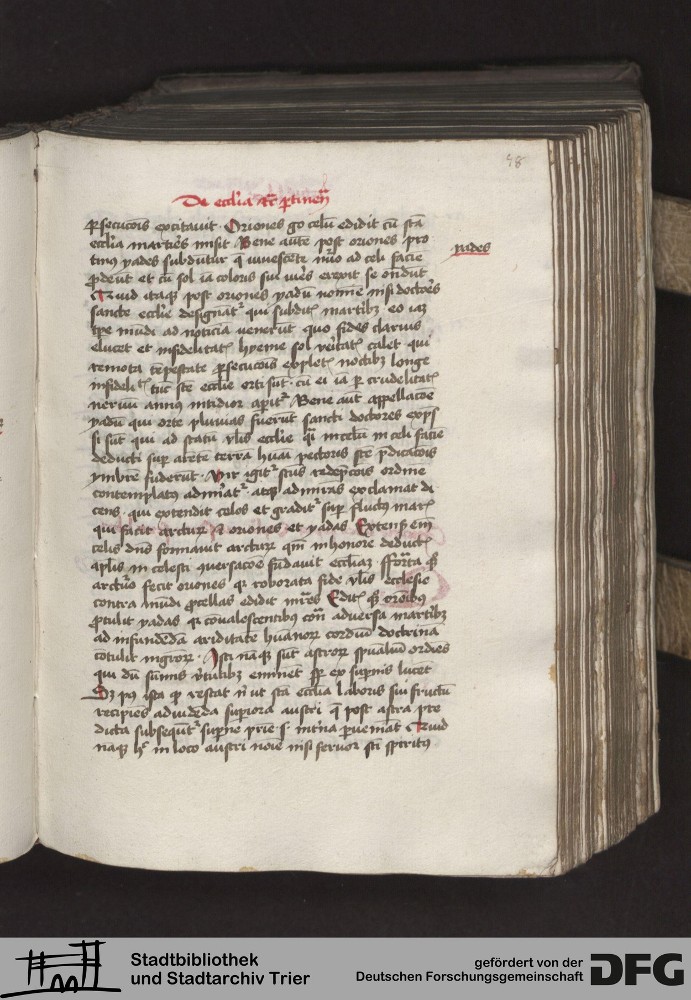 48
De eccl'ia et ptinen
psecucois excitauit · Oriones go celu edidit cu sta
eccl'ia martires misit Bene aute post oriones pro
tinus yades subdutur q iuuescete mudo ad celi facie
yades
pdeut et cu sol ia coloris sui vires erexit se ondut
Quid itaq post oriones yadu nomine nisi doctores
sancte eccl'ie designat qui subduct martibz eo iaz
tpe mudi ad noticia venerut quo fides clarius
elucet et infidelitat hyeme sol veritat calet qui
remota tepestate psecucois explet noctibz longe
infidelit tuc ste eccl'ie orti sut cu ei ia p crudelitat
vernu annus nitidior aperit Bene aut appellacoe
yadu qui orte pluuias fuerut sancti doctores exps
si sut qui ad statu vlis eccl'ie qi in celu in celi facie
deducti sup arete terra huai pectoris ste pdicacois
ymbre fuderut · Vir igit stus redepcois ordine
contemplatus admirat atq admirans exclamat di
cens · qui extendit celos et gradit sup fluctus mar
qui facit arctur et oriones et yadas Extensis em
celis dns formauit arctur qm in honore deduct
aplis in celesti quersacoe fudauit eccl'iaz · Formato q
arcturo fecit oriones q roborata fide vlis ecclesie
contra mudi pcellas edidit mres Editis q oronibus
ptulit yadas q coualescentibus contra aduersa martibz
ad infundeda ariditate huanor cordiu doctrina
cotulit nigror · Isti naq sut astror spualiu ordies
qui du sumis vtutibz eminent sp ex supnis lucet
Sz post ista qd restat n ut sta eccl'ia laboris sui fructu
recipies ad videda supiora austri q post astra pre
dicta subsequt supne prie s interna pueniat Quid
naq h in loco austri noie nisi feruor sti spiritus
Stadtbibliothek
und Stadtarchiv Trier
gefördert von der
Deutschen Forschungsgemeinschaft
DFG